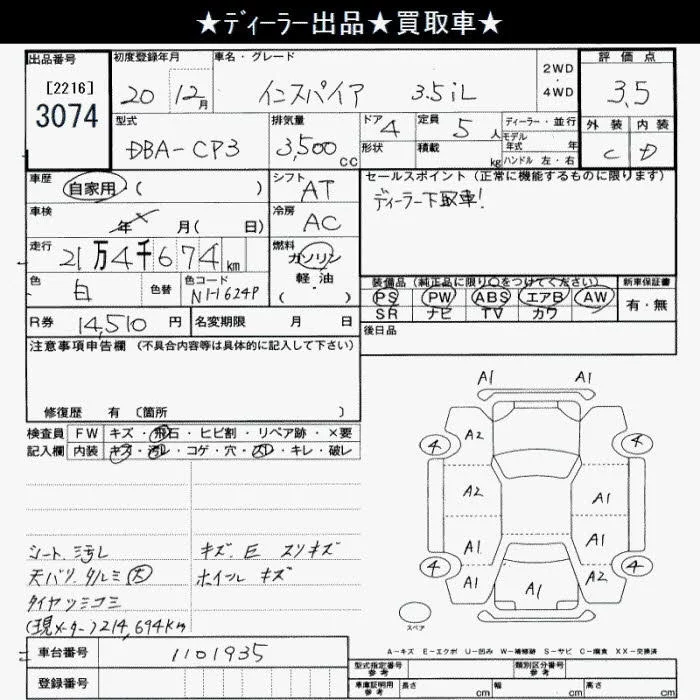 ★ディーラー出品★買取車★
出品番号 初度登録年月 車名・グレード 評価点
[2216] 20 12月 インスパイア 3.5iL 2WD・4WD 3.5
3074
型式 排気量 ドア 定員 ディーラー・並行 外装 内装
DBA-CP3 3,500cc 4 5人 モデル年式 年 C D
形状 積載 kg ハンドル 左・右
車歴 自家用 ( ) シフト AT セールスポイント (正常に機能するものに限ります)
ディーラー下取車!
車検 年 月( 日) 冷房 AC
走行 21万4千674km 燃料 ガソリン
軽・油
( )
色 白 色替 色コード NH-624P 装備品 (純正品に限り○をつけてください) 新車保証書
PS PW ABS エアB AW 有・無
SR ナビ TV カワ
R券 14,510円 名変期限 月 日 後日品
注意事項申告欄 (不具合内容等は具体的に記入して下さい)
修復歴 有 〔箇所 〕
検査員 FW キズ・飛石・ヒビ割・リペア跡・×要
記入欄 内装 キズ・汚レ・コゲ・穴・スレ・キレ・破レ
A1 A1
4 A2 4
A2 A1
A1 A1
4 A1 A1 A2 4
スペア
シート.汚レ キズ.E スリキズ
天バリ タルミ 大 ホイール キズ
タイヤツミコミ
(現メーター)214,694km
A-キズ E-エクボ U-凹み W-補修跡 S-サビ C-腐食 XX-交換済
車台番号 1101935
登録番号
型式指定番号 参考 類別区分番号 参考
車庫証明用 参考 長さ cm 幅 cm 高さ cm